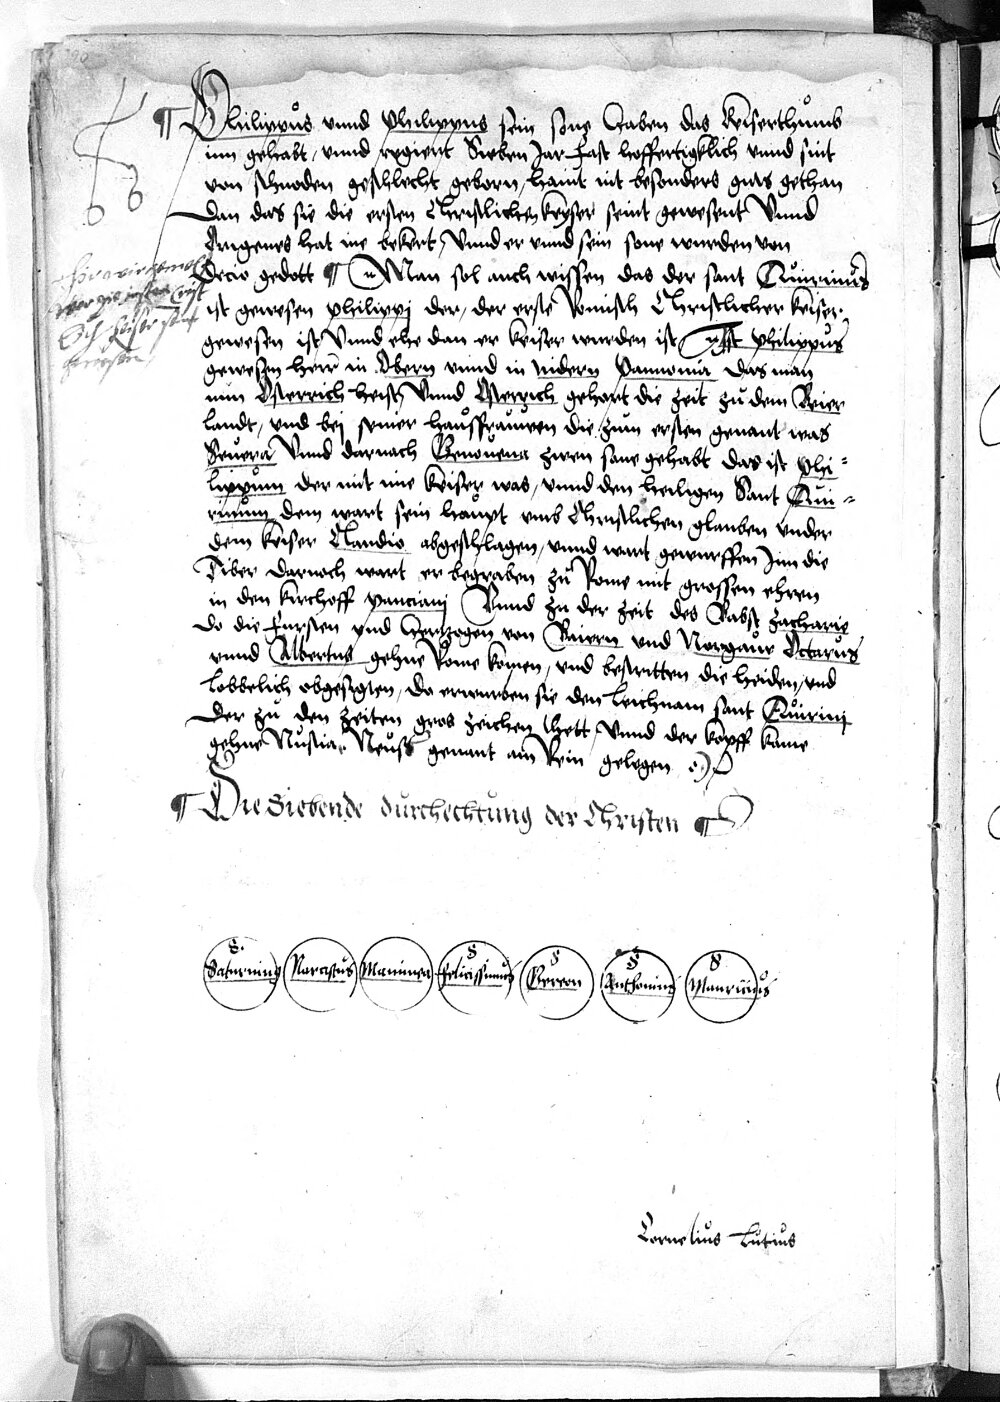 ¶ Philippus vnnd Philippus sein sone Haben das keiserthumb
inn gehabt, vnnd regiert Sieben Jar fast hoffertigklich vnnd sint
von schnoden geschlecht geborn, haint nit besonders guts gethan
Dan das sie die ersten Christlichen keyser seint gewesent Vnnd
Origenes hat ine bekert, Vnnd er vnnd sein sone wurden von
Decio gedott ¶ Man sol auch wissen das der sant Quirinus
ist gewesen philippi der, der erste Romisch Christlicher keiser
gewesen ist Vnnd ehe dan er keiser wurden ist, Ist philippus
gewesen herr in Obern vnnd in nidern Pannonia das man
nun Osterrich heist, Vnnd Osterrich gehort die zeit zu dem Beier
landt, vnd bei seiner haussfrauwen die zum ersten genant was
Seuera Vnnd darnach Genouena zwen sone gehabt das ist phi-
lippum der mit ime keiser was, vnnd den heiligen Sant Qui-
rinum dem wart sein haupt vmb Christlichen glauben vnder
dem keiser Claudio abgeschlagen, vnnd wart geworffen Jnn die
Tiber darnach wart er begraben zu Rome mit grossen ehren
in den kirchoff panciani Vnnd zu der zeit des Babst zacharie
do die fursten vnd Hertzogen von Baiern vnd Norgauw Octarus
vnnd Albertus gehne Rome komen, vnd bestritten die heiden, vnd
lobbelich obgesigten, do erwurben sie den leichnam sant Quirini
Der zu den zeiten gros zeichen thett, Vnnd der kopff kame
gehne Nussia, Neuss genant am Rein gelegen
¶ Die Siebende durchechtung der Christen ¶
S. Saturninus Narcissus Maninea S Felicissimus S Gereon S Anthonius S Mauricius
Cornelius Lucius